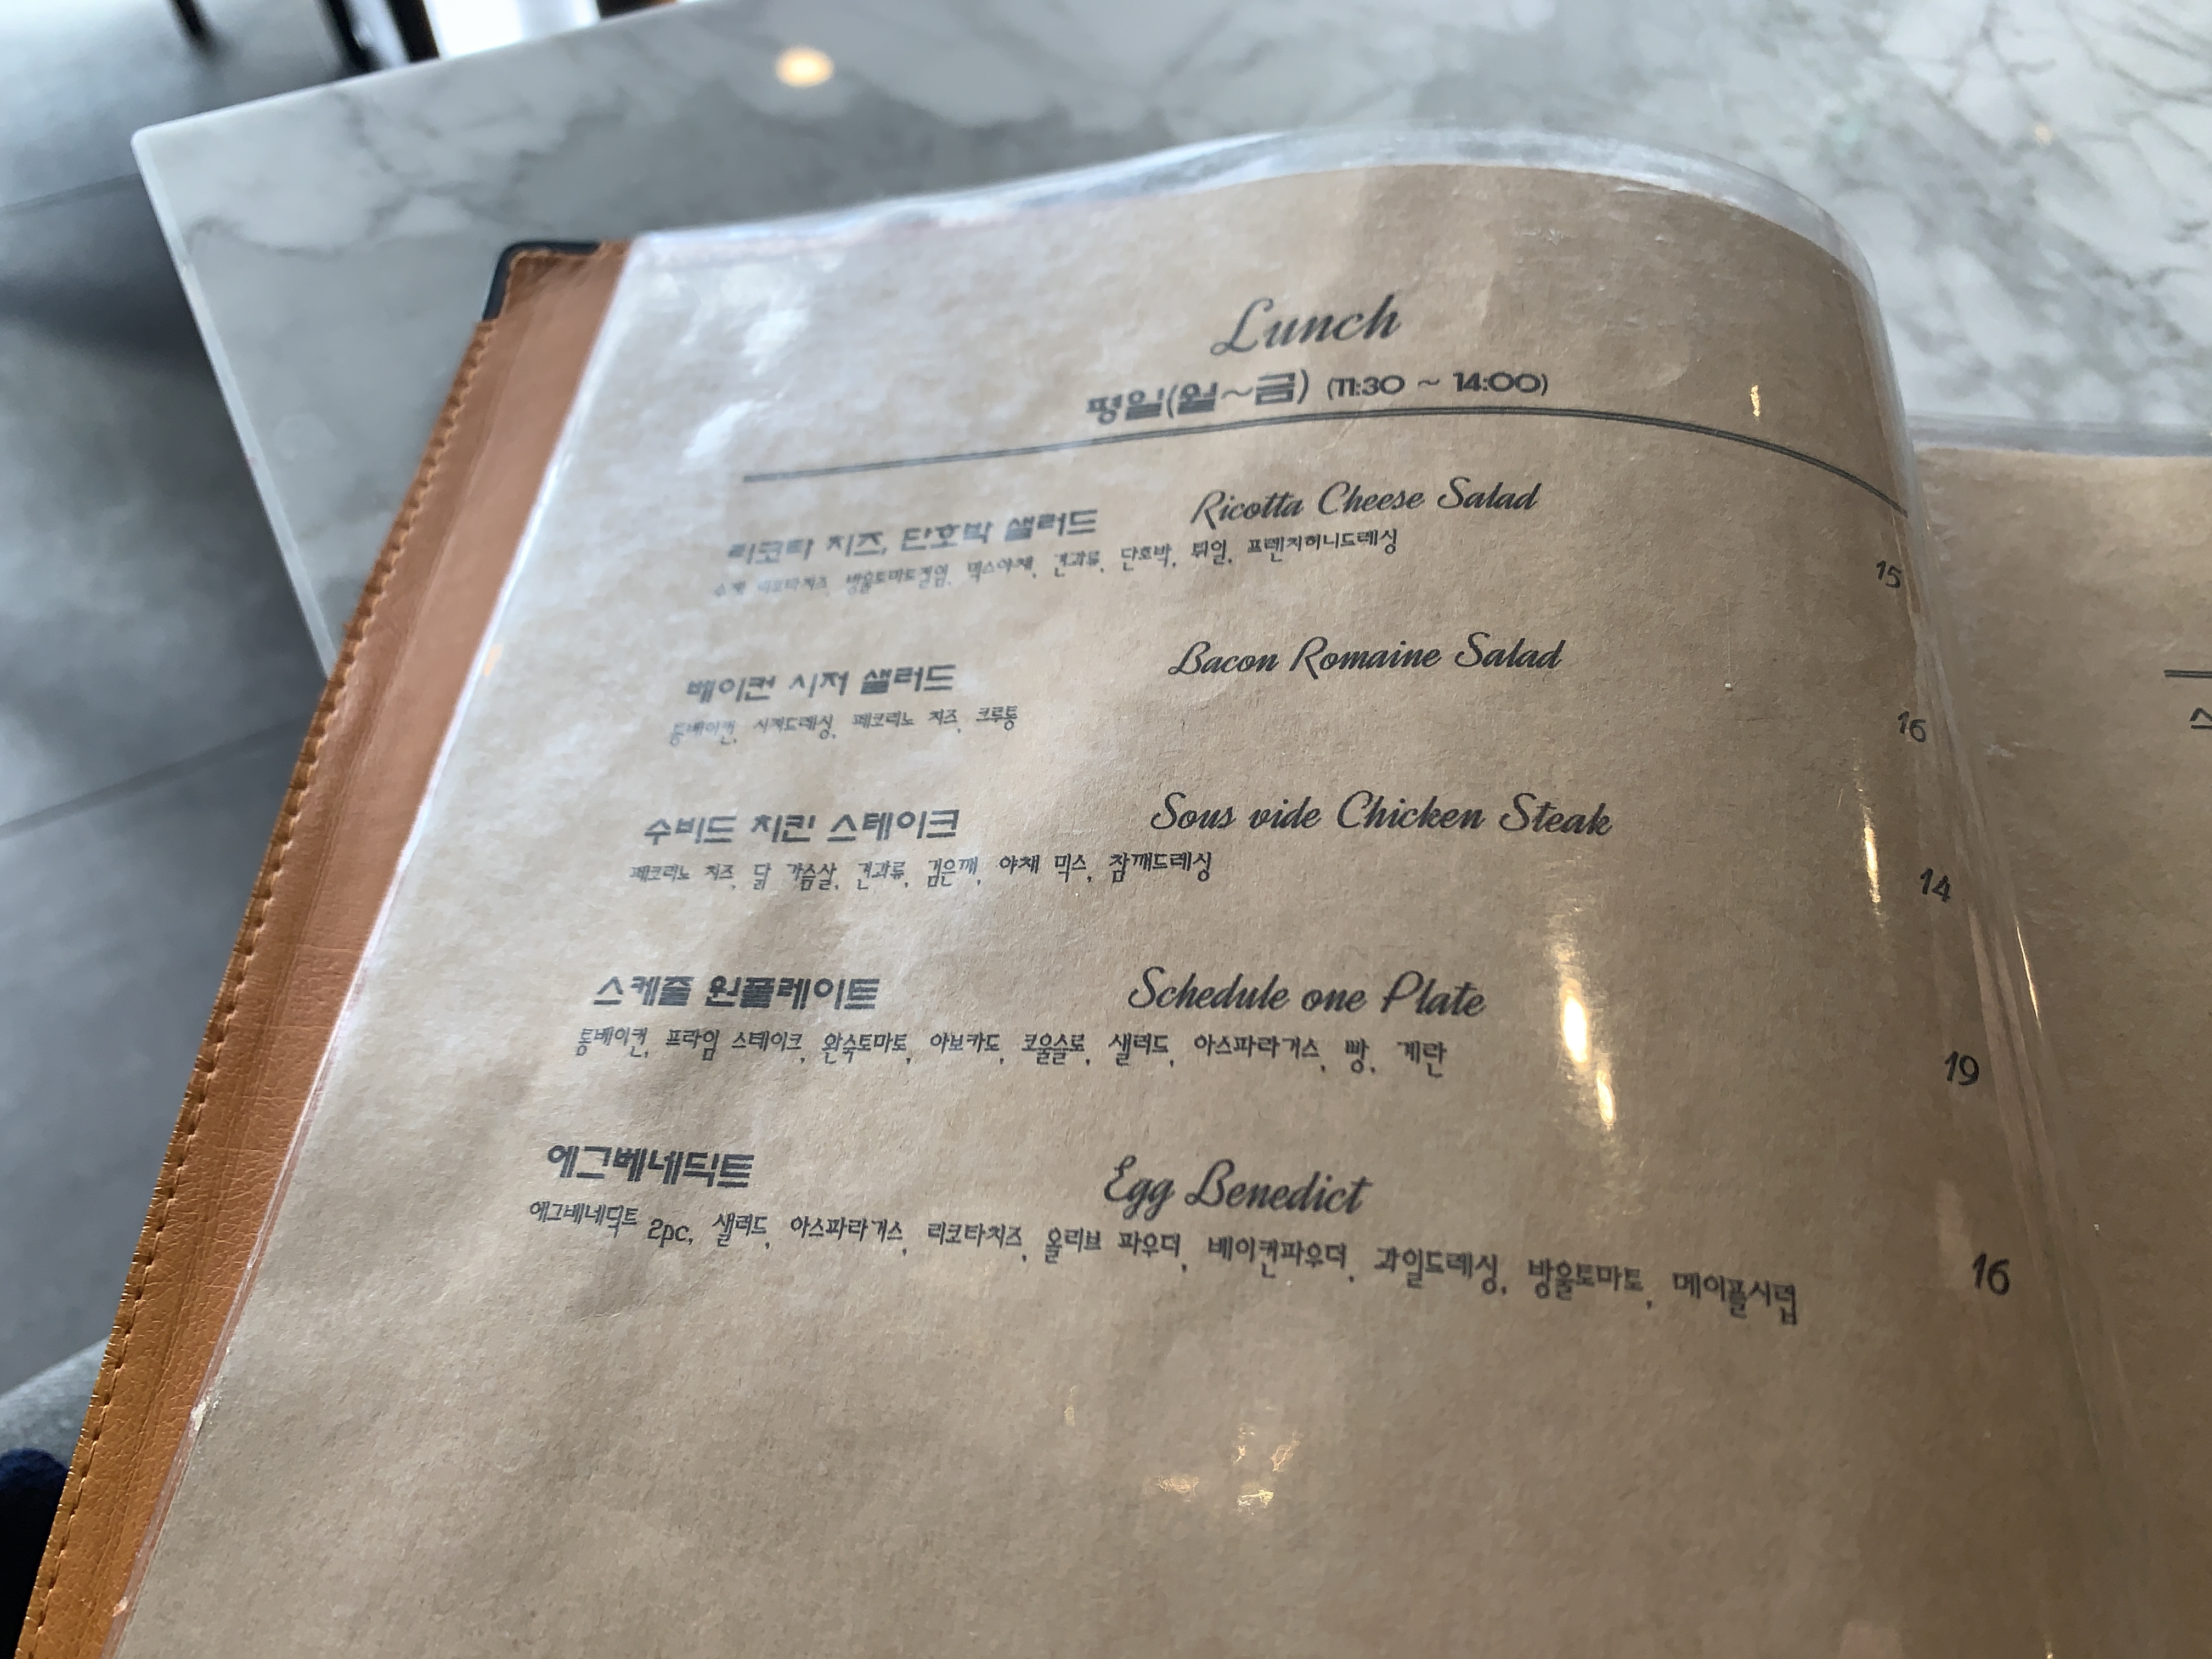 Lunch
평일(월~금) (11:30 ~ 14:00)
리코타 치즈, 단호박 샐러드 Ricotta Cheese Salad
수제 리코타치즈, 방울토마토절임, 믹스야채, 견과류, 단호박, 튀일, 프렌치허니드레싱
15
베이컨 시저 샐러드 Bacon Romaine Salad
통베이컨, 시저드레싱, 페코리노 치즈, 크루통
16
수비드 치킨 스테이크 Sous vide Chicken Steak
페코리노 치즈, 닭 가슴살, 견과류, 검은깨, 야채 믹스, 참깨드레싱
14
스케줄 원플레이트 Schedule one Plate
통베이컨, 프라임 스테이크, 완숙토마토, 아보카도, 코울슬로, 샐러드, 아스파라거스, 빵, 계란
19
에그베네딕트 Egg Benedict
에그베네딕트 2pc, 샐러드, 아스파라거스, 리코타치즈, 올리브 파우더, 베이컨파우더, 과일드레싱, 방울토마토, 메이플시럽
16